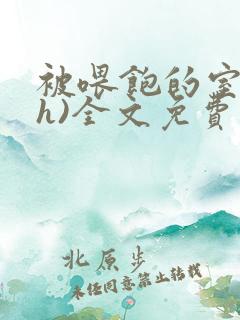 被喂飽的室
h)全文免費
北原步
未经同意禁止转载